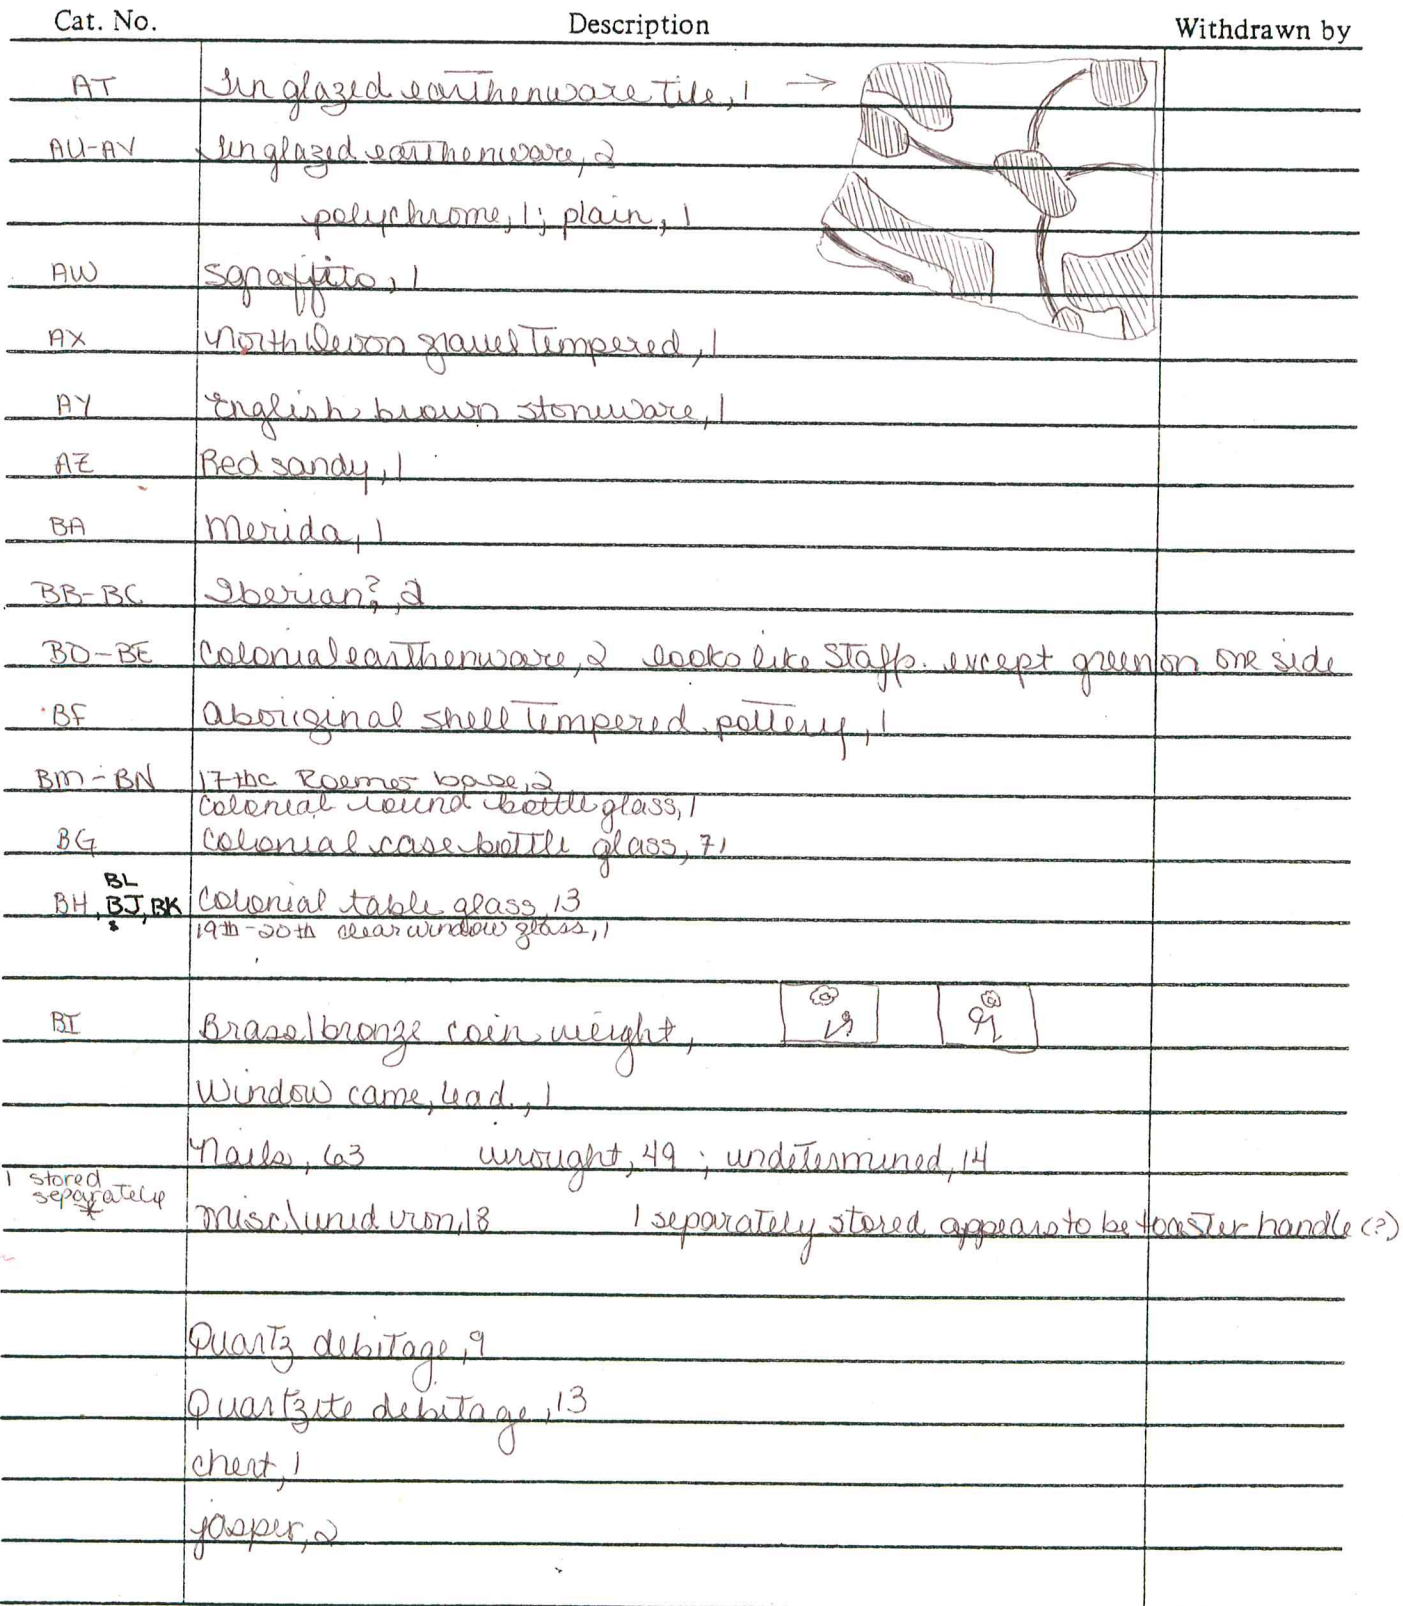 Cat. No. Description Withdrawn by
AT Tin glazed earthenware tile, 1 →
AU-AV Tin glazed earthenware, 2
polychrome, 1; plain, 1
AW sgraffito, 1
AX North Devon gravel tempered, 1
AY English brown stoneware, 1
AZ Red sandy, 1
BA Merida, 1
BB-BC Iberian?, 2
BD-BE Colonial earthenware, 2 looks like Staff. except green on one side
BF aboriginal shell tempered pottery, 1
BM-BN 17thc Roemer base, 2
Colonial round bottle glass, 1
BG Colonial case bottle glass, 71
BL
BH, BJ, BK Colonial table glass, 13
19th-20th clear window glass, 1
BI Brass/bronze coin weight,
Window came, lead, 1
Nails, 63 wrought, 49; undetermined, 14
1 stored
separately
* Misc/unid iron, 18 1 separately stored appears to be toaster handle (?)
Quartz debitage, 9
Quartzite debitage, 13
chert, 1
jasper, 2